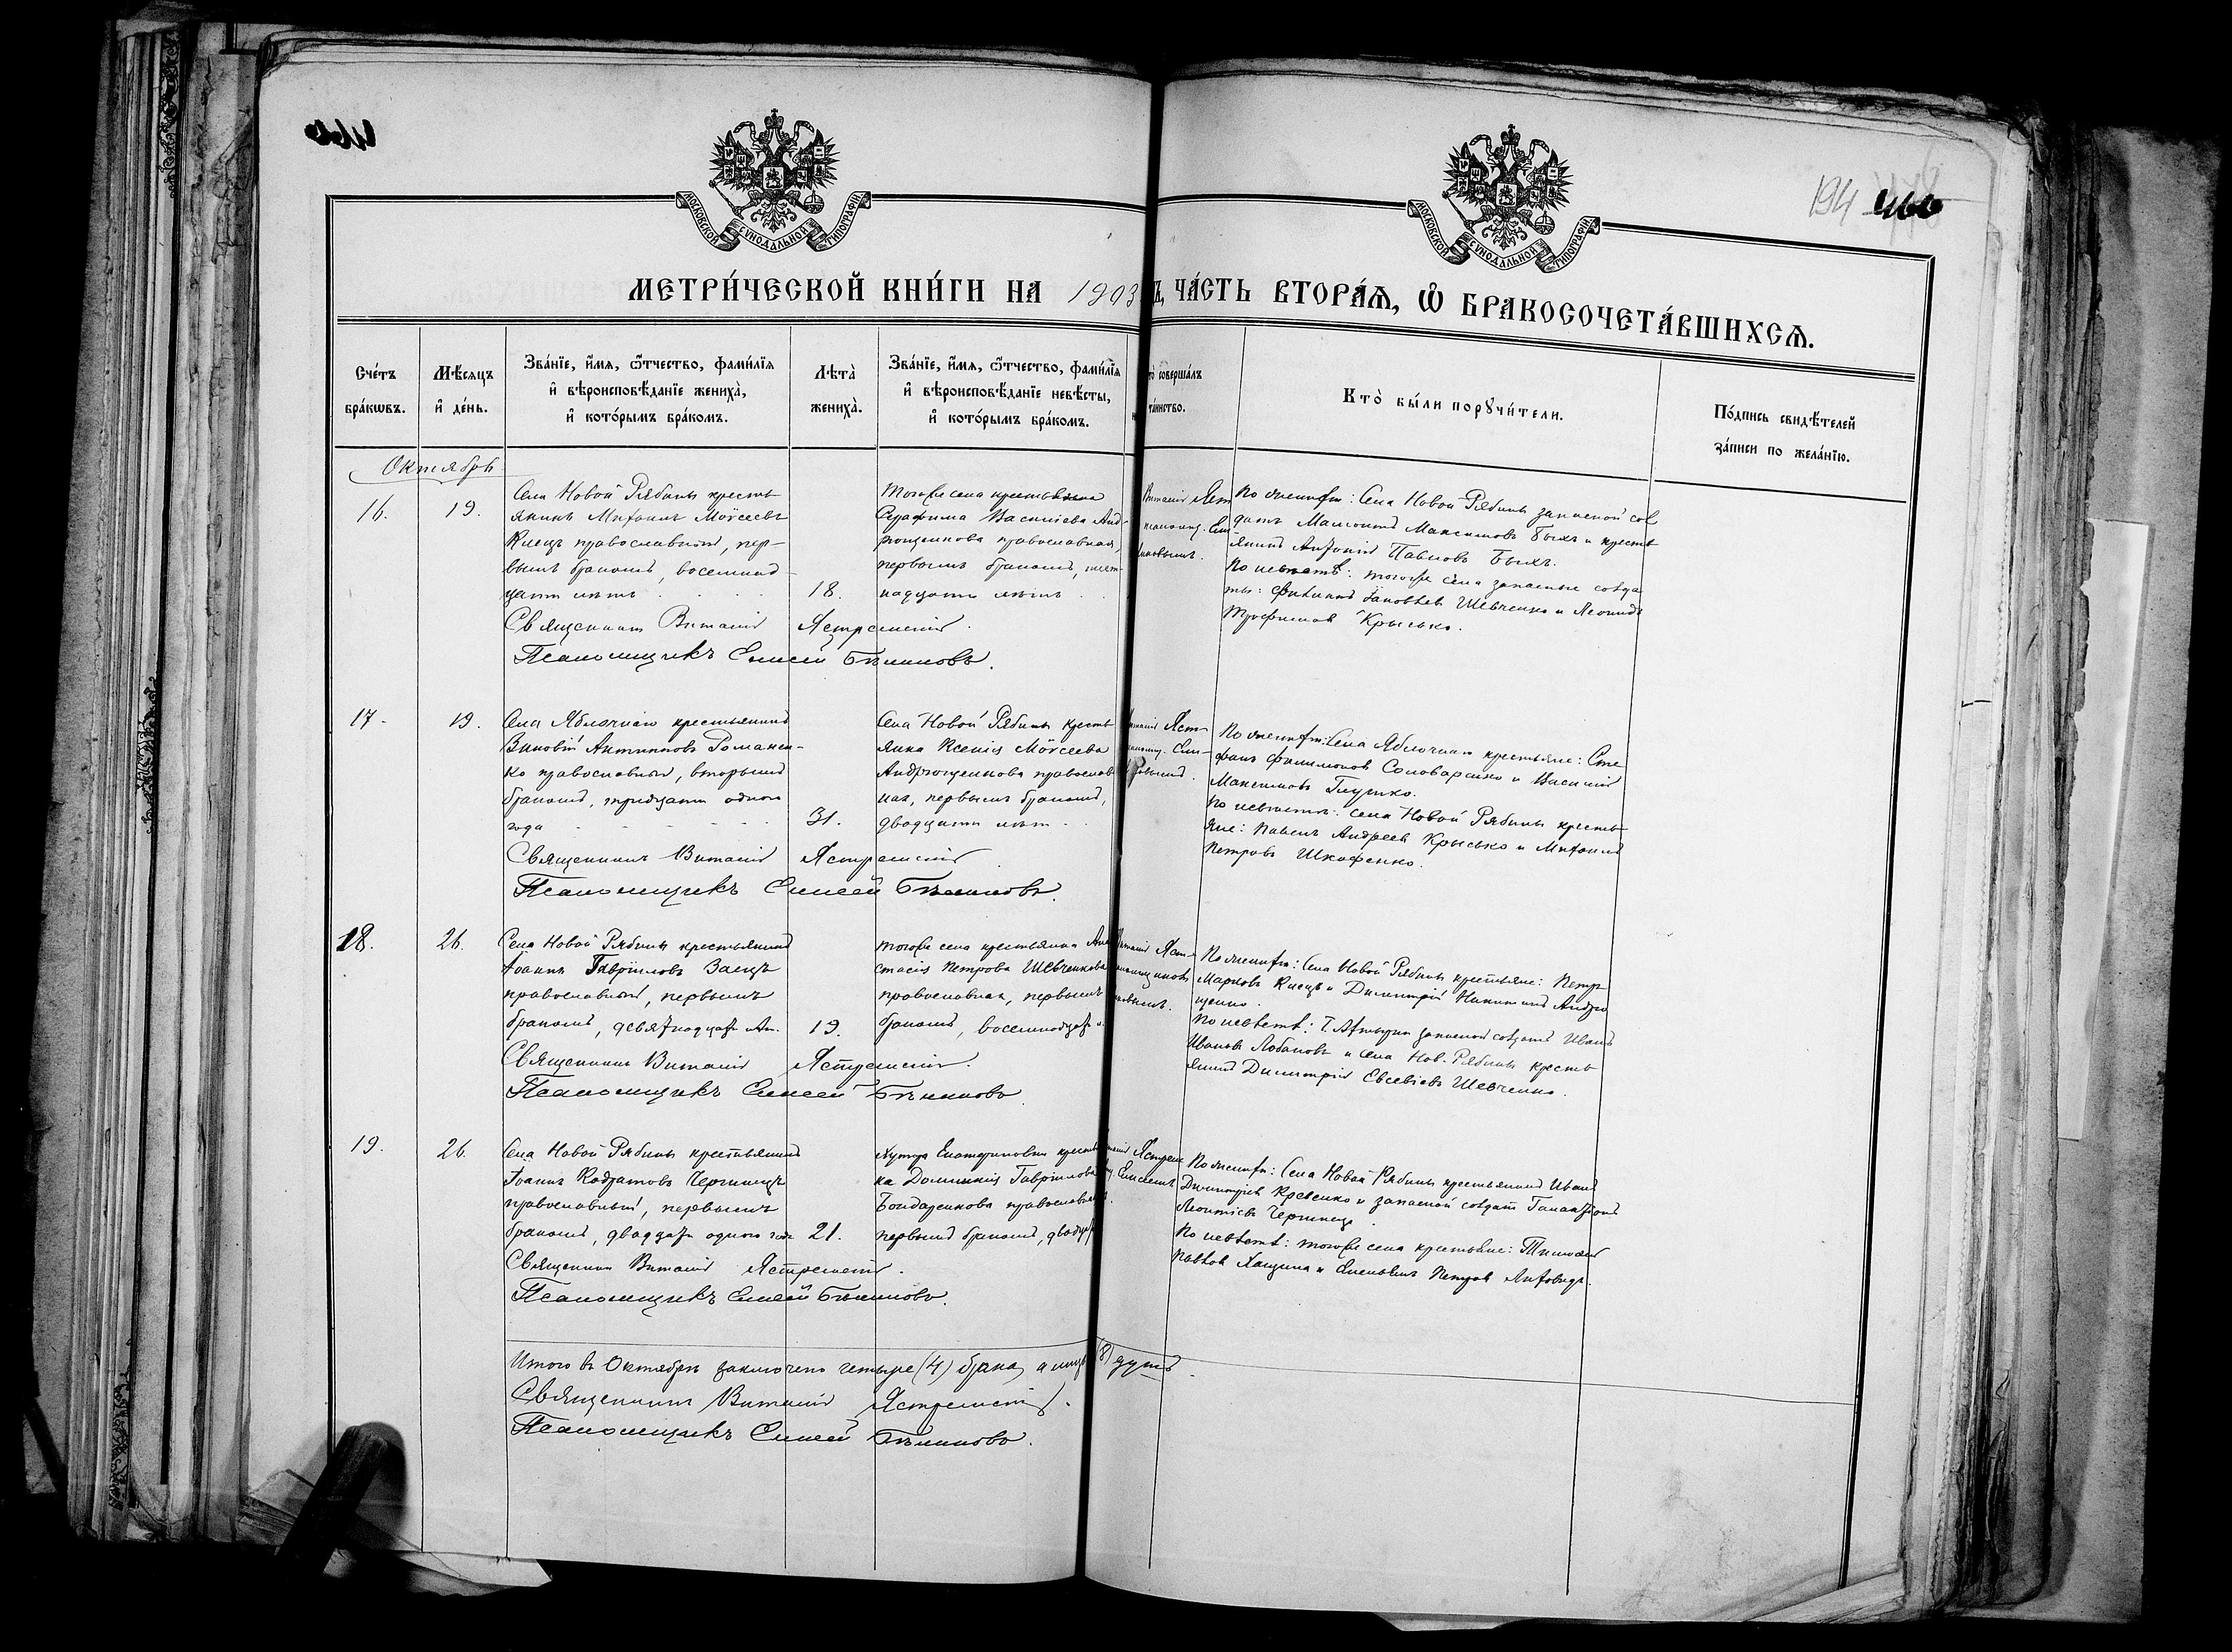 194
МОСКОВСКОЙ СѴНОДАЛЬНОЙ ТИПОГРАФІИ
МОСКОВСКОЙ СѴНОДАЛЬНОЙ ТИПОГРАФІИ
МЕТРИ́ЧЕСКОЙ КНИ́ГИ НА 1903 Ъ, ЧА́СТЬ ВТОРА́Ѧ, Ѡ҆ БРАКОСОЧЕТА́ВШИХСѦ.
Сче́тъ
бра́кѡвъ.
Мѣ́сѧцъ
и҆ де́нь.
Зва́нїе, и҆́мѧ, ѻ҆́тчество, фами́лїѧ
и҆ вѣроисповѣ́данїе жениха̀,
и҆ кото́рымъ бра́комъ.
Лѣта̀
жениха̀.
Зва́нїе, и҆́мѧ, ѻ҆́тчество, фами́лїѧ
и҆ вѣроисповѣ́данїе невѣ́сты,
и҆ кото́рымъ бра́комъ.
то̀ соверша́лъ
та́инство.
Кто̀ бы́ли порꙋчи́тели.
По́дпись свидѣ́телей
за́писи по жела́нїю.
Октябрь
16. 19.
Села Новой Рябины кресть
янинъ Михаилъ Моѵсеевъ
Клецъ православный, пер-
вымъ бракомъ, восемнад
цати лѣтъ
18.
Тогоже села крестьянка
Серафима Васильева Анд-
рющенкова православная,
первымъ бракомъ, шест-
надцати лѣтъ
Виталій Яст
По женихѣ: Села Новой Рябины запасной сол
датъ Максимовъ Быхъ и кресть
янинъ Павловъ Быхъ.
По невѣстѣ: тогоже села запасные солда
ты: Филиппъ Іаковлевъ Шевченко и Леонидъ
Трофимовъ Крысько.
Священникъ Виталій Ястремскій.
Псаломщикъ Елисей Бѣликовъ.
17. 19.
Села Яблочнаго крестьянинъ
Зиновій Антиповъ Романен-
ко православный, вторымъ
бракомъ, тридцати одного
года
31.
Села Новой Рябины кресть
янка Ксенія Моѵсеева
Андрющенкова православ
ная, первымъ бракомъ,
двадцати лѣтъ
Яст-
По женихѣ: Села Яблочнаго крестьяне: Сте
фанъ Филимоновъ и Василій
Максимовъ Глушко.
По невѣстѣ: села Новой Рябины кресть
яне: Павелъ Андреевъ Крысько и Михаилъ
Петровъ
Священникъ Виталій Ястремскій
Псаломщикъ Елисей Бѣликовъ.
18. 26.
Села Новой Рябины крестьянинъ
Іоаннъ Гавріиловъ Заецъ
православный, первымъ
бракомъ, девятнадцати лѣт.
19.
тогоже села крестьянка Ана
стасія Петрова Шевченкова
православная, первымъ
бракомъ, восемнадцати л.
Яст-
По женихѣ: Села Новой Рябины крестьяне: Петръ
Марковъ Клецъ и Димитрій Никитинъ Андрю
щенко.
По невѣстѣ: Г. Ахтырки запасной солдатъ Иванъ
Ивановъ Лобановъ и села Нов. Рябины кресть
янинъ Димитрій Евсевіевъ Шевченко.
Священникъ Виталій Ястремскій.
Псаломщикъ Елисей Бѣликовъ
19. 26.
Села Новой Рябины крестьянинъ
Іоаннъ Чернецъ
православный, первымъ
бракомъ, двадцати одного года
21.
Хутора Екатериновки крестьян
ка Домникія Гавріилова
Бондаренкова православная
первымъ бракомъ, двадцати
Елисеемъ
По женихѣ: Села Новой Рябины крестьянинъ Иванъ
Димитріевъ и запасной солдатъ Галактіонъ
Леонтіевъ Чернецъ.
По невѣстѣ: тогоже села крестьяне: Тимофей
и Емельянъ Петровъ
Священникъ Виталій Ястремскій.
Псаломщикъ Елисей Бѣликовъ.
Итого въ Октябрѣ заключено четыре (4) брака, а лицъ (8) душъ.
Священникъ Виталій Ястремскій.
Псаломщикъ Елисей Бѣликовъ.